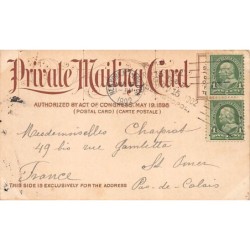 Private Mailing Card
AUTHORIZED BY ACT OF CONGRESS, MAY 19, 1898
(POSTAL CARD) (CARTE POSTALE)
Mesdemoiselles Chaperal
49 bis rue Gambetta
St Omer
France
Pas-de-Calais
THIS SIDE IS EXCLUSIVELY FOR THE ADDRESS